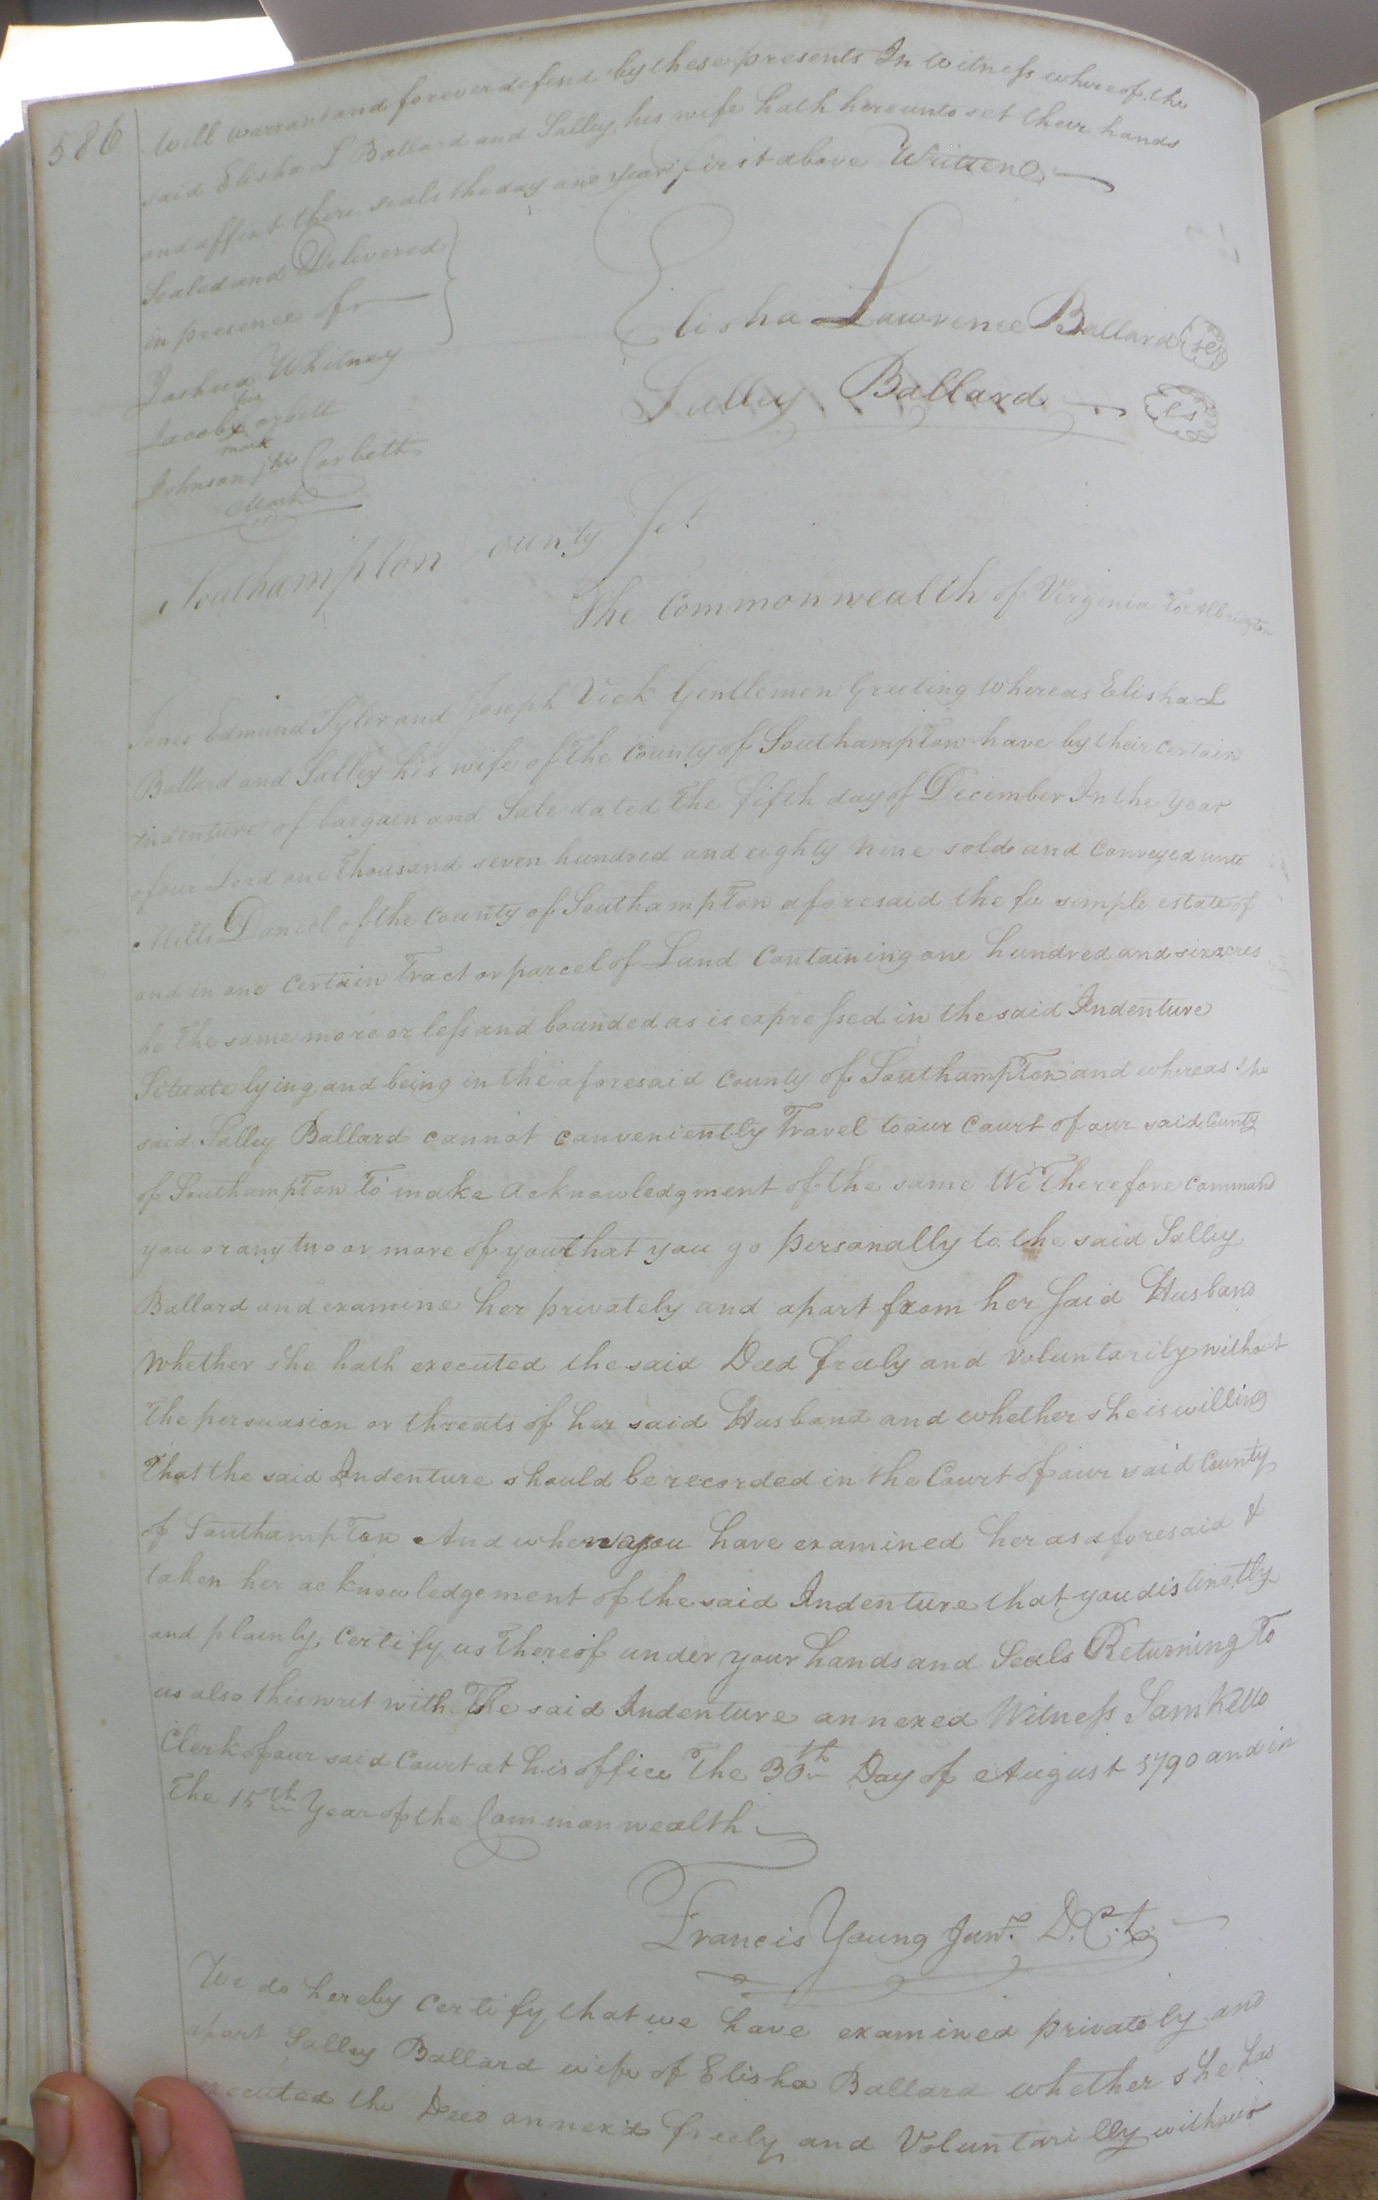 586
Will warrant and forever defend by these presents In Witness whereof the
said Elisha L Ballard and Salley his wife hath hereunto set their hands
and affixt there seals the day and year first above Written
Sealed and Delivered
in presence of
Joshua Whitney
Jacob his x mark Corbett
Johnson his mark Corbett
Elisha Lawrence Ballard
Salley Ballard LS
Southampton County Sct
The Commonwealth of Virginia To Albrington
Jones Edmund Tyler and Joseph Vick Gentlemen Greeting Whereas Elisha L
Ballard and Salley his wife of the County of Southampton have by their certain
indenture of bargain and Sale dated the fifth day of December In the year
of our Lord one thousand seven hundred and eighty nine sold and Conveyed unto
Mills Daniel of the County of Southampton aforesaid the fee simple estate of
and in one Certain Tract or parcel of Land Containing one hundred and six acres
be the same more or less and bounded as is expressed in the said Indenture
Situate lying and being in the aforesaid County of Southampton and whereas the
said Salley Ballard cannot conveniently Travel to our Court of our said County
of Southampton To make acknowledgment of the same We Therefore command
you or any two or more of you that you go personally to the said Salley
Ballard and examine her privately and apart from her said Husband
Whether she hath executed the said Deed freely and voluntarily without
the persuasion or threats of her said Husband and whether she is willing
That the said Indenture should be recorded in the Court of our said County
of Southampton And when you have examined her as aforesaid &
taken her acknowledgement of the said Indenture that you distinctly
and plainly, Certify us thereof under your hands and Seals Returning To
us also this writ with The said Indenture annexed Witness Sam Kello
Clerk of our said Court at his office The 30th Day of August 1790 and in
The 15th Year of the Commonwealth
Francis Young Junr. D.C.
We do hereby certify that we have examined privately and
apart Salley Ballard wife of Elisha Ballard whether she has
executed the Deed annex'd freely and Voluntarilly without